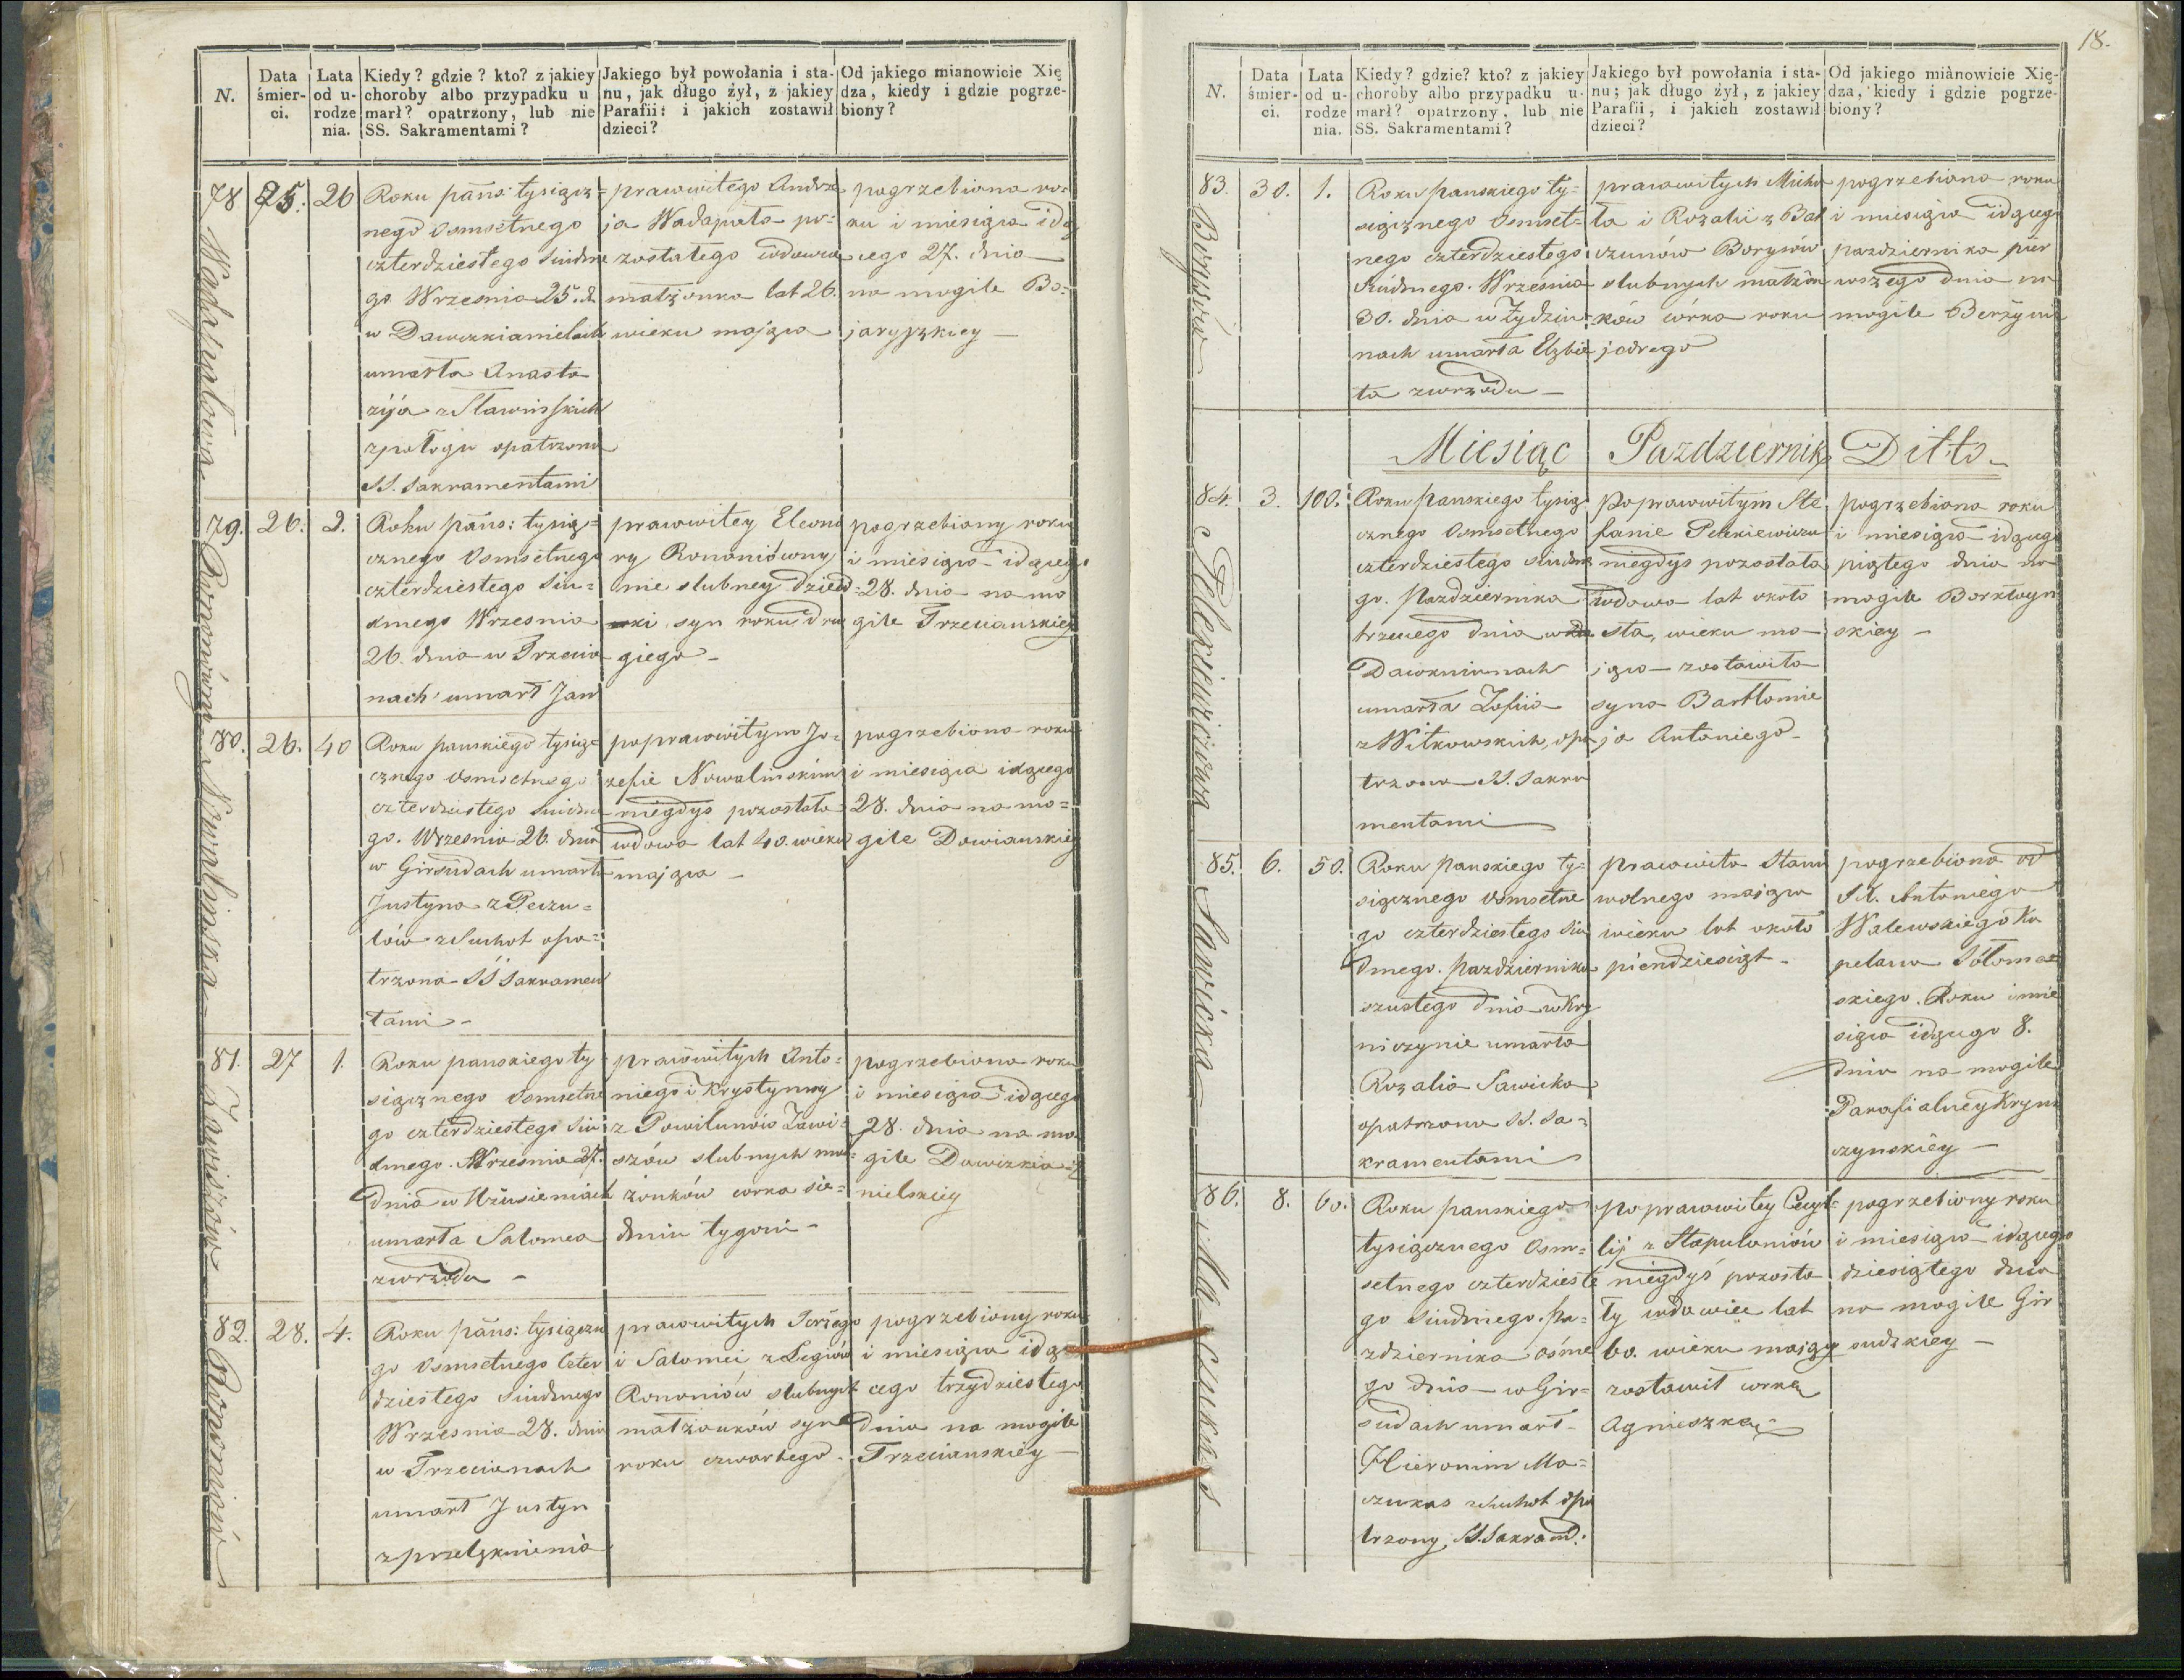 N.
Data śmier-ci.
Lata od u-rodze nia.
Kiedy? gdzie? kto? z jakiey
choroby albo przypadku u
marł? opatrzony, lub nie
SS. Sakramentami?
Jakiego był powołania i sta-
nu, jak długo żył, z jakiey
Parafii: i jakich zostawił
dzieci?
Od jakiego mianowicie Xię
dza, kiedy i gdzie pogrze-
biony?
78
25.
26
Roku pańs: tysiącz=
nego Osmsetnego
czterdziestego siudme
go Wrzesnia 25. d.
w Dawzkianielach
umarła Anasta
zija z Sławinskich
z połogu opatrzona
SS. Sakramentami
prawowitego Andrze
ja Wadapała po=
zostałego wdowca
małżonka lat 26.
wieku mająca
pogrzebiona ro=
ku i miesiąca idą
cego 27. dnia
na mogile Bo=
jaryszkiey —
79.
26.
2.
Roku pańs: tysią=
cznego Osmsetnego
czterdziestego Siu=
dmego Wrzesnia
26. dnia w Trzecia
nach umarł Jan
prawowitey Eleono
ry Rononiówny
nie slubney dziew
ki syn roku dru
giego —
pogrzebiony roku
i miesiąca idącego
28. dnia na mo
gile Trzecianskiey
80.
26.
40
Roku panskiego tysią=
cznego Osmsetnego
czterdziestego siudme
go. Wrzesnia 26. dnia
w Girsudach umarła
Justyna z Peczu=
lów z Suchot opa=
trzona SS Sakramen
tami —
po prawowitym Jo=
zefie Nowalinskim
niegdys pozostała
wdowa lat 40. wieku
mająca —
pogrzebiona roku
i miesiąca idącego
28. dnia na mo=
gile Dowianskiey
81.
27
1.
Roku panskiego ty
siącznego Osmsetne
go czterdziestego Siu
dmego. Wrzesnia 27.
dnia w Użusieniach
umarła Salomea
z wrzodu —
prawowitych Anto=
niego i Krystynny
z Powilunów Zawi=
szów slubnych mał=
żonków corka sie=
dmiu tygoni —
pogrzebiona roku
i miesiąca idącego
28. dnia na mo
gile Dawizkia
nielskiey
82.
28.
4.
Roku pańs: tysiączne
go Osmsetnego Czter
dziestego Siudmego
Wrzesnia 28. dnia
w Trzecianach
umarł Justyn
z przelęknienia
prawowitych Jerzego
i Salomei z Legów
Rononiów slubnych
małżonków syn
roku czwartego.
pogrzebiony roku
i miesiąca idą
cego trzydziestego
dnia na mogile
Trzecianskiey —
Nowalinska
Zawiszów
Rononiów
18.
N.
Data śmier-ci.
Lata od u-rodze nia.
Kiedy? gdzie? kto? z jakiey
choroby albo przypadku u-
marł? opatrzony, lub nie
SS. Sakramentami?
Jakiego był powołania i sta-
nu; jak długo żył, z jakiey
Parafii, i jakich zostawił
dzieci?
Od jakiego mianowicie Xię-
dza, kiedy i gdzie pogrze-
biony?
83.
30.
1.
Roku Panskiego ty=
siącznego Osmset=
nego czterdziestego
siudmego. Września
30. dnia w Żydziu
nach umarła Elzbie
ta z wrzodu —
prawowitych Micha
ła i Rozalii z Bal
czunów Borysów
slubnych małżon
ków córka roku
jednego
pogrzebiona roku
i miesiąca idącego
pazdziernika pier
wszego dnia na
mogile
Miesiąc Pazdziernik Ditto
84.
3.
100.
Roku Panskiego tysią
cznego Osmsetnego
czterdziestego siudme
go. Pazdziernika
trzeciego dnia w
Dawkniunach
umarła Zofiia
z Witkowskich, opa
trzona SS. Sakra
mentami
Po prawowitym Ste
fanie Pelekiewiczu
niegdys pozostała
wdowa lat około
sta, wieku ma
jąca — zostawiła
syna Barttomie
ja Antoniego —
pogrzebiona roku
i miesiąca idącego
piątego dnia na
mogile Borktoyn
skiey —
85.
6.
50.
Roku Panskiego ty=
siącznego Osmsetne
go czterdziestego Siu
dmego. Pazdziernika
szustego dnia w Kry
niczynie umarła
Rozalia Sawicka
opatrzona SS. Sa=
kramentami
prawowita stanu
wolnego mająca
wieku lat około
piendziesiąt —
pogrzebiona od
JX. Antoniego
Walewskiego Ka
pelana
skiego. Roku i mie
siąca idącego 8.
dnia na mogile
Parafialney Kryni
czynskiey —
86.
8.
60.
Roku panskiego
tysiącznego Osm=
setnego czterdzieste
go siudmego. Pa=
zdziernika osme
go dnia — w Gir=
sudach umarł
Hieronim Ma=
czukas z Suchot opa
trzony, SS. Sakram:
po prawowitey Cecy=
lij z Stapuloniów
niegdyś pozosta
ły wdowiec lat
60. wieku mający
zostawił corkę
Agnieszkę —
pogrzebiony roku
i miesiąca idącego
dziesiątego dnia
na mogile Gir
sudzkiey —
Borysów
Pelekiewiczowa
Sawicka
Maczukas